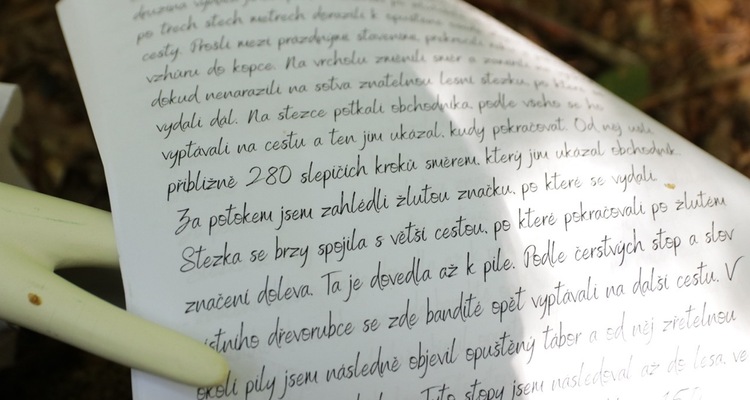 po třech stech metrech dorazili k
cesty. Prošli mezi prázdnými staveními, pokračovali
vzhůru do kopce. Na vrcholu změnili směr a
dokud nenarazili na sotva znatelnou lesní stezku, po které
vydali dál. Na stezce potkali obchodníka, podle všeho se ho
vyptávali na cestu a ten jim ukázal, kudy pokračovat. Od něj ušli
přibližně 280 slepičích kroků směrem, který jim ukázal obchodník.
Za potokem jsem zahlédli žlutou značku, po které se vydali.
Stezka se brzy spojila s větší cestou, po které pokračovali po žlutém
značení doleva. Ta je dovedla až k pile. Podle čerstvých stop a slov
místního dřevorubce se zde bandité opět vyptávali na další cestu. V
okolí pily jsem následně objevil opuštěný tábor a od něj zřetelnou
Tyto stopy jsem následoval až do lesa, ve